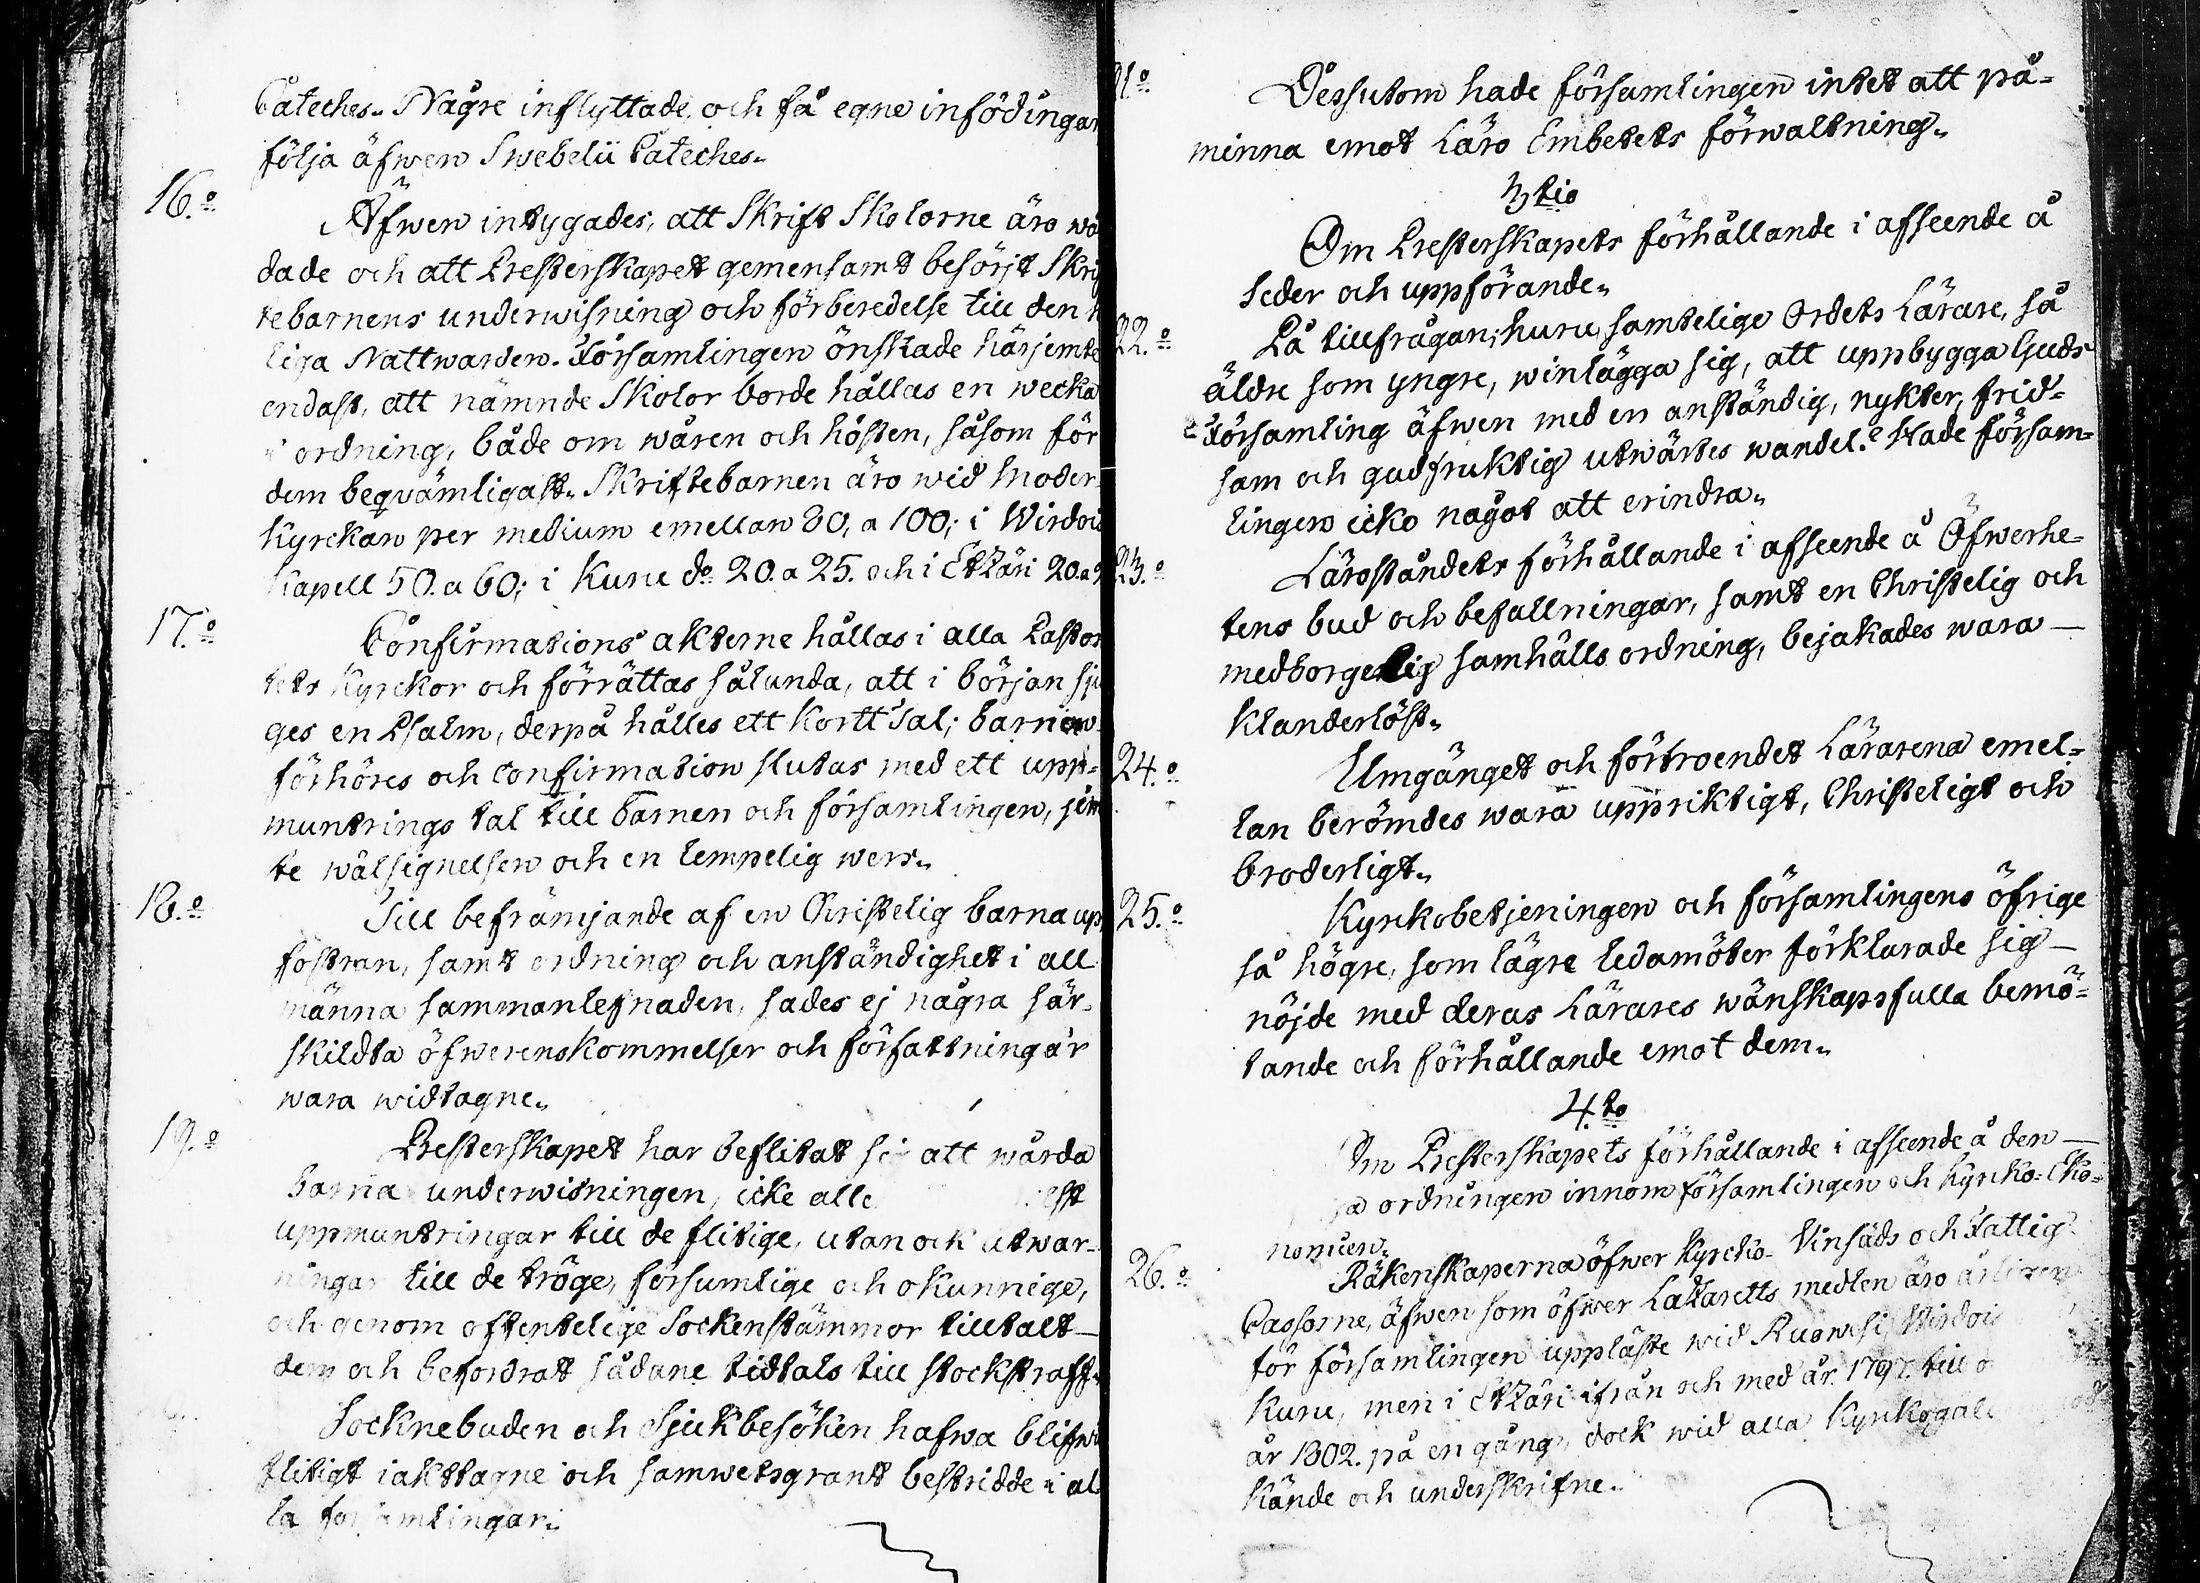 Cateches. Någre inflyttade, och få egne infödingar
följa äfwen Swebelii Cateches.
16.o
Äfwen intygades, att Skrift Skolorne äro wå
dade och att Presterskapet gemensamt besörjt Skrif
tebarnens underwisning och förberedelse till den h
liga Nattwarden. Församlingen önskade härjemte
endast, att nämnde Skolor borde hållas en wecka
i ordning, både om wåren och hösten, såsom för
dem beqvämligast. Skriftebarnen äro wid Moder-
kyrckan per medium emellan 80, a 100; i Wirdois
Kapell 50. a 60; i Kuru do 20. a 25. och i Etzäri 20. a
17.o
Confirmations akterne hållas i alla Pastor
tets Kyrckor och förrättas sålunda, att i början sju
ges en Psalm, derpå hålles ett kortt Tal; barnen
förhöres och Confirmation slutas med ett upp-
muntrings tal till barnen och församlingen, jem
te wälsignelsen och en lempelig wers.
18.o
Till befrämjande af en Christelig barna up
fostran, samt ordning och anständighet i all
männa sammanlefnaden, sades ej några sär-
skildta öfwerenskommelser och författningar
wara widtagne.
19.o
Presterskapet har beflitat si att wårda
barna underwisningen, icke alle
uppmuntringar till de flitige, utan ock utwar-
ningar till de tröge, försumlige och okunnige,
och genom offentelige Sockenstämmor tilltalt
dem och befordrat sådane tidtals till stockstraff.
Socknebuden och Sjukbesöken hafwa blifwi
flitigt iakttagne och samwetsgrant bestridde i al
la församlingar.
21o
Dessutom hade församlingen intet att på-
minna emot Läro Embetets förwaltning.
3tio
Om Presterskapets förhållande i afseende å
seder och uppförande.
22.o
På tillfrågan; huru samtelige Ordets Lärare, så
äldre som yngre, winlägga sig, att uppbygga Guds
Församling äfwen med en anständig, nykter, frid-
sam och gudfruktig utwärtes wandel? Hade försam-
lingen icke något att erindra.
23.o
Läroståndets förhållande i afseende å Öfwerhe-
tens bud och befallningar, samt en Christelig och
medborgerlig samhälls ordning, bejakades wara
klanderlöst.
24.o
Umgänget och förtroendet Lärarena emel-
lan berömdes wara uppriktigt, Christeligt och
broderligt.
25.o
Kyrkobetjeningen och församlingens öfrige
så högre, som lägre ledamöter förklarade sig
nöjde med deras Lärares wänskapsfulla bemö-
tande och förhållande emot dem.
4.to
Om Presterskapets förhållande i afseende å den
ordningen innom församlingen och Kyrko- Eko-
nomien.
26.o
Räkenskaperna öfwer Kyrcko- Vinsäds och Fattig-
Cassorne, äfwen som öfwer Lazaretts medlen äro årligen
för församlingen uppläste wid Ruowesi, Wirdois
Kuru, men i Etzäri ifrån och med år 1797. till o
år 1802. på en gång, dock wid alla Kyrkor
kände och underskrifne.